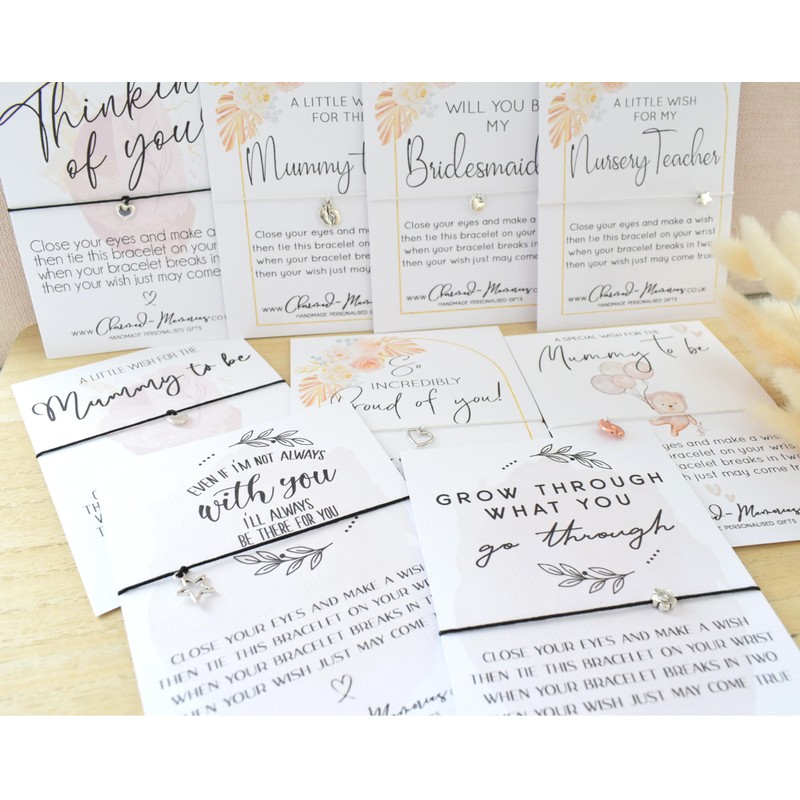 Thinkin
of you
Close your eyes and make a
then tie this bracelet on your
when your bracelet breaks in
then your wish just may come
www.Charmed-Memories.co
HANDMADE PERSONALISED GIFTS
A LITTLE WI
FOR THE
Mummy t
Close your eyes and make a
then tie this bracelet on your
when your bracelet breaks in
then your wish just may come
www.Charmed-Memories
HANDMADE PERSONALISED GIFTS
WILL YOU B
MY
Bridesmaid
Close your eyes and make a
then tie this bracelet on your
when your bracelet breaks in
then your wish just may come
www.Charmed-Memories
HANDMADE PERSONALISED GIFTS
A LITTLE WISH
FOR MY
Nursery Teacher
Close your eyes and make a wish
then tie this bracelet on your wrist
when your bracelet breaks in two
then your wish just may come true
www.Charmed-Memories.co.uk
HANDMADE PERSONALISED GIFTS
A LITTLE WISH FOR THE
Mummy to be
So
INCREDIBLY
Proud of you!
A SPECIAL WISH FOR THE
Mummy to be
eyes and make a wish
bracelet on your wrist
bracelet breaks in two
wish just may come true
med-Memories
MADE PERSONALISED GIFTS
EVEN IF I'M NOT ALWAYS
with you
I'LL ALWAYS
BE THERE FOR YOU
CLOSE YOUR EYES AND MAKE A WISH
THEN TIE THIS BRACELET ON YOUR WRIS
WHEN YOUR BRACELET BREAKS IN TW
THEN YOUR WISH JUST MAY COME T
GROW THROUGH
WHAT YOU
go through
CLOSE YOUR EYES AND MAKE A WISH
THEN TIE THIS BRACELET ON YOUR WRIST
WHEN YOUR BRACELET BREAKS IN TWO
THEN YOUR WISH JUST MAY COME TRUE